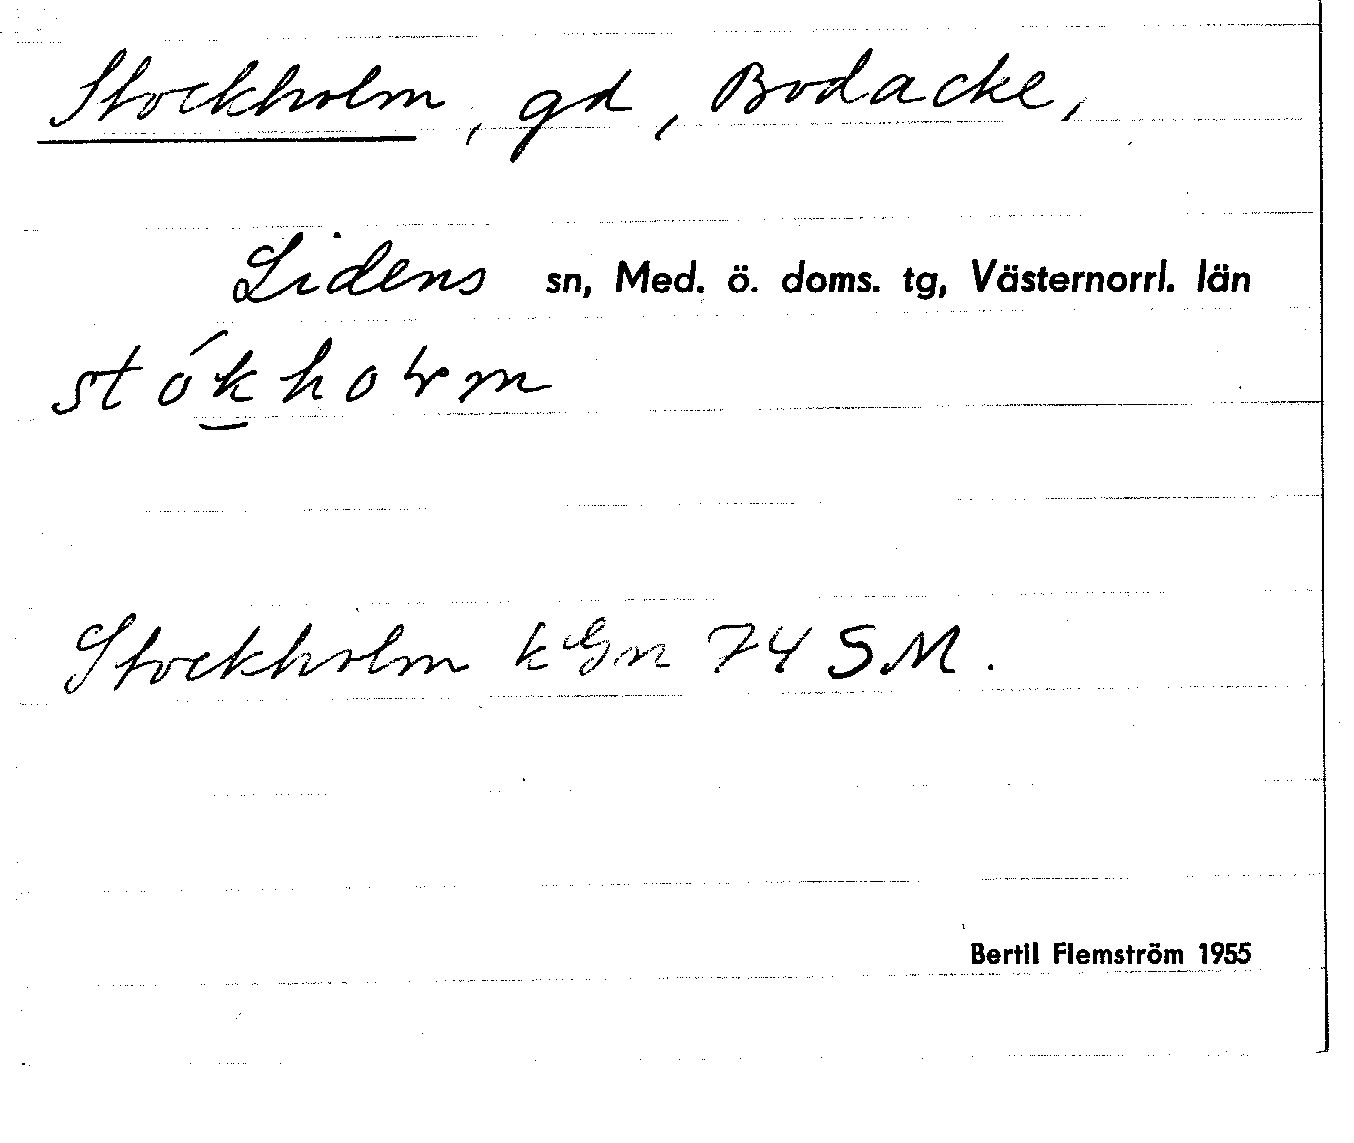 Stockholm, gd, Bodacke,
Lidens sn, Med. ö. doms. tg, Västernorrl. län
Stockholm kGn 74 SM.
Bertil Flemström 1955